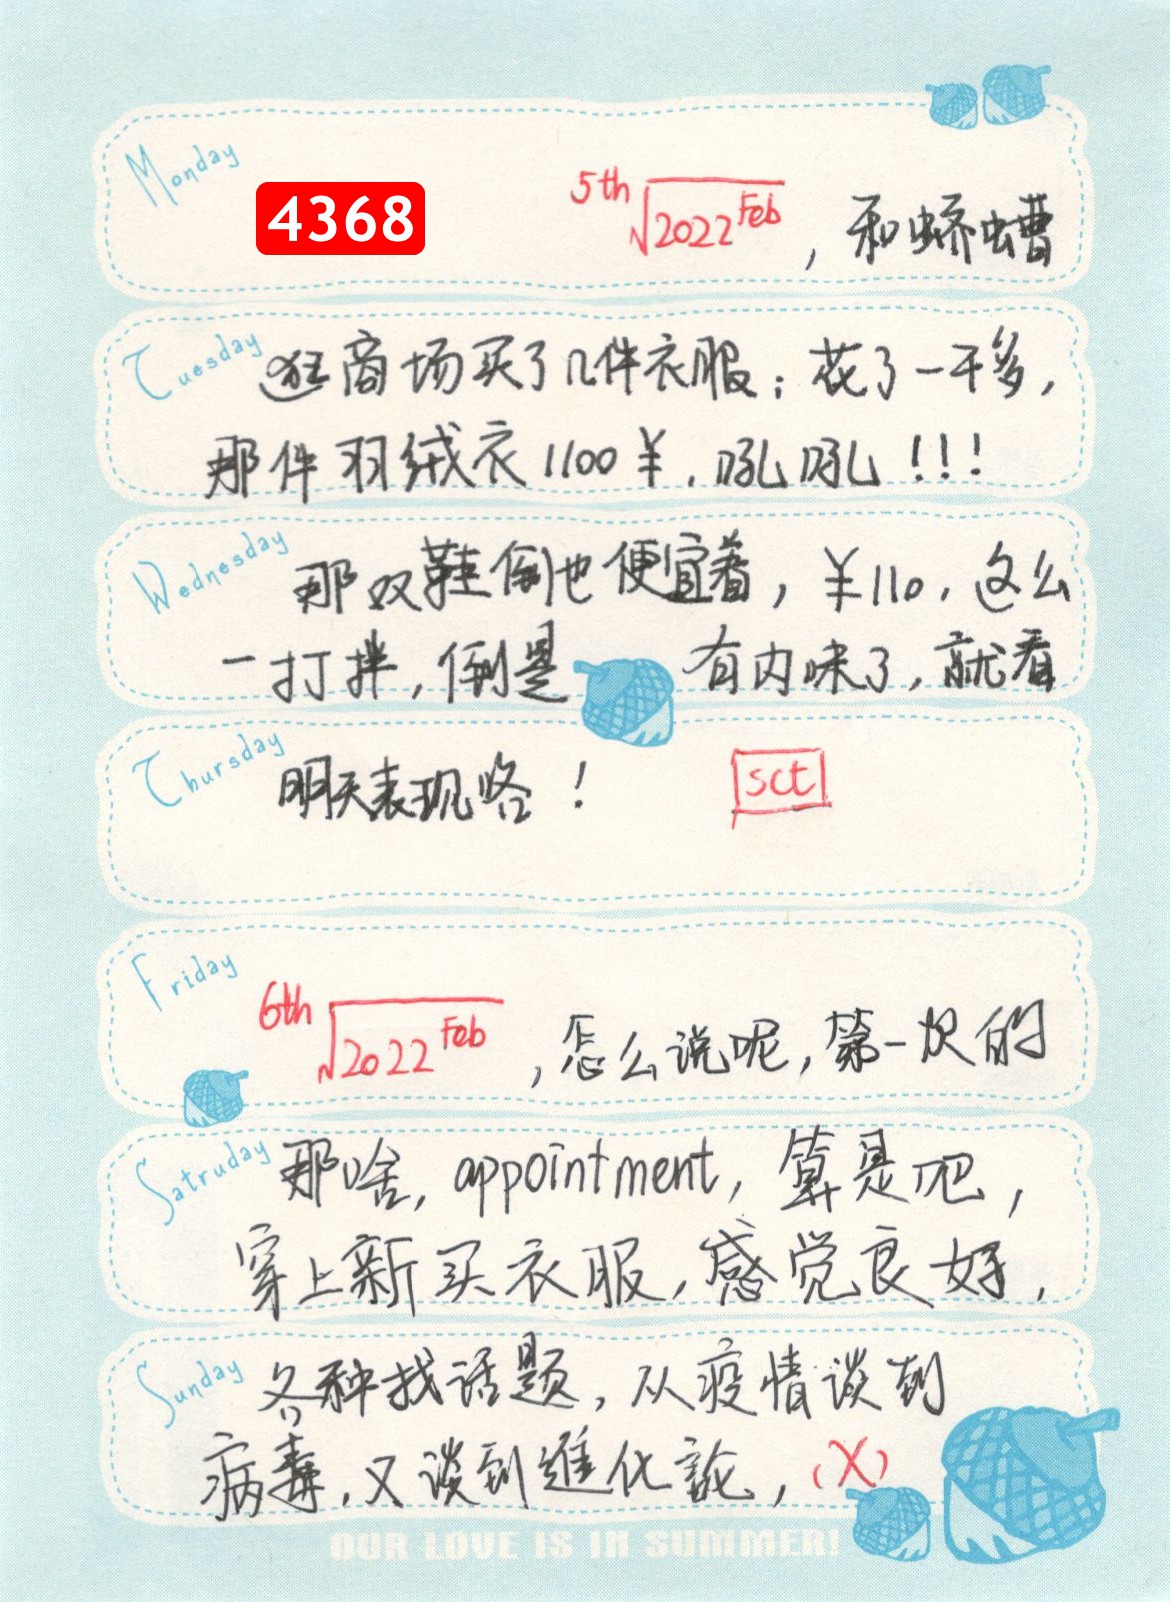 Monday
4368
5th √2022 Feb , 和蛴螬
Tuesday 逛商场买了几件衣服；花了一千多，
那件羽绒衣1100¥，吼吼！！！
Wednesday 那双鞋倒也便宜着，¥110，这么
一打拌，倒是有内味了，就看
Thursday 明天表现咯！ sct
Friday
6th √2022 Feb ，怎么说呢，第一次的
Satruday 那啥，appointment，算是吧，
穿上新买衣服，感觉良好，
Sunday 各种找话题，从疫情谈到
病毒，又谈到進化論，(X)
OUR LOVE IS IN SUMMER!